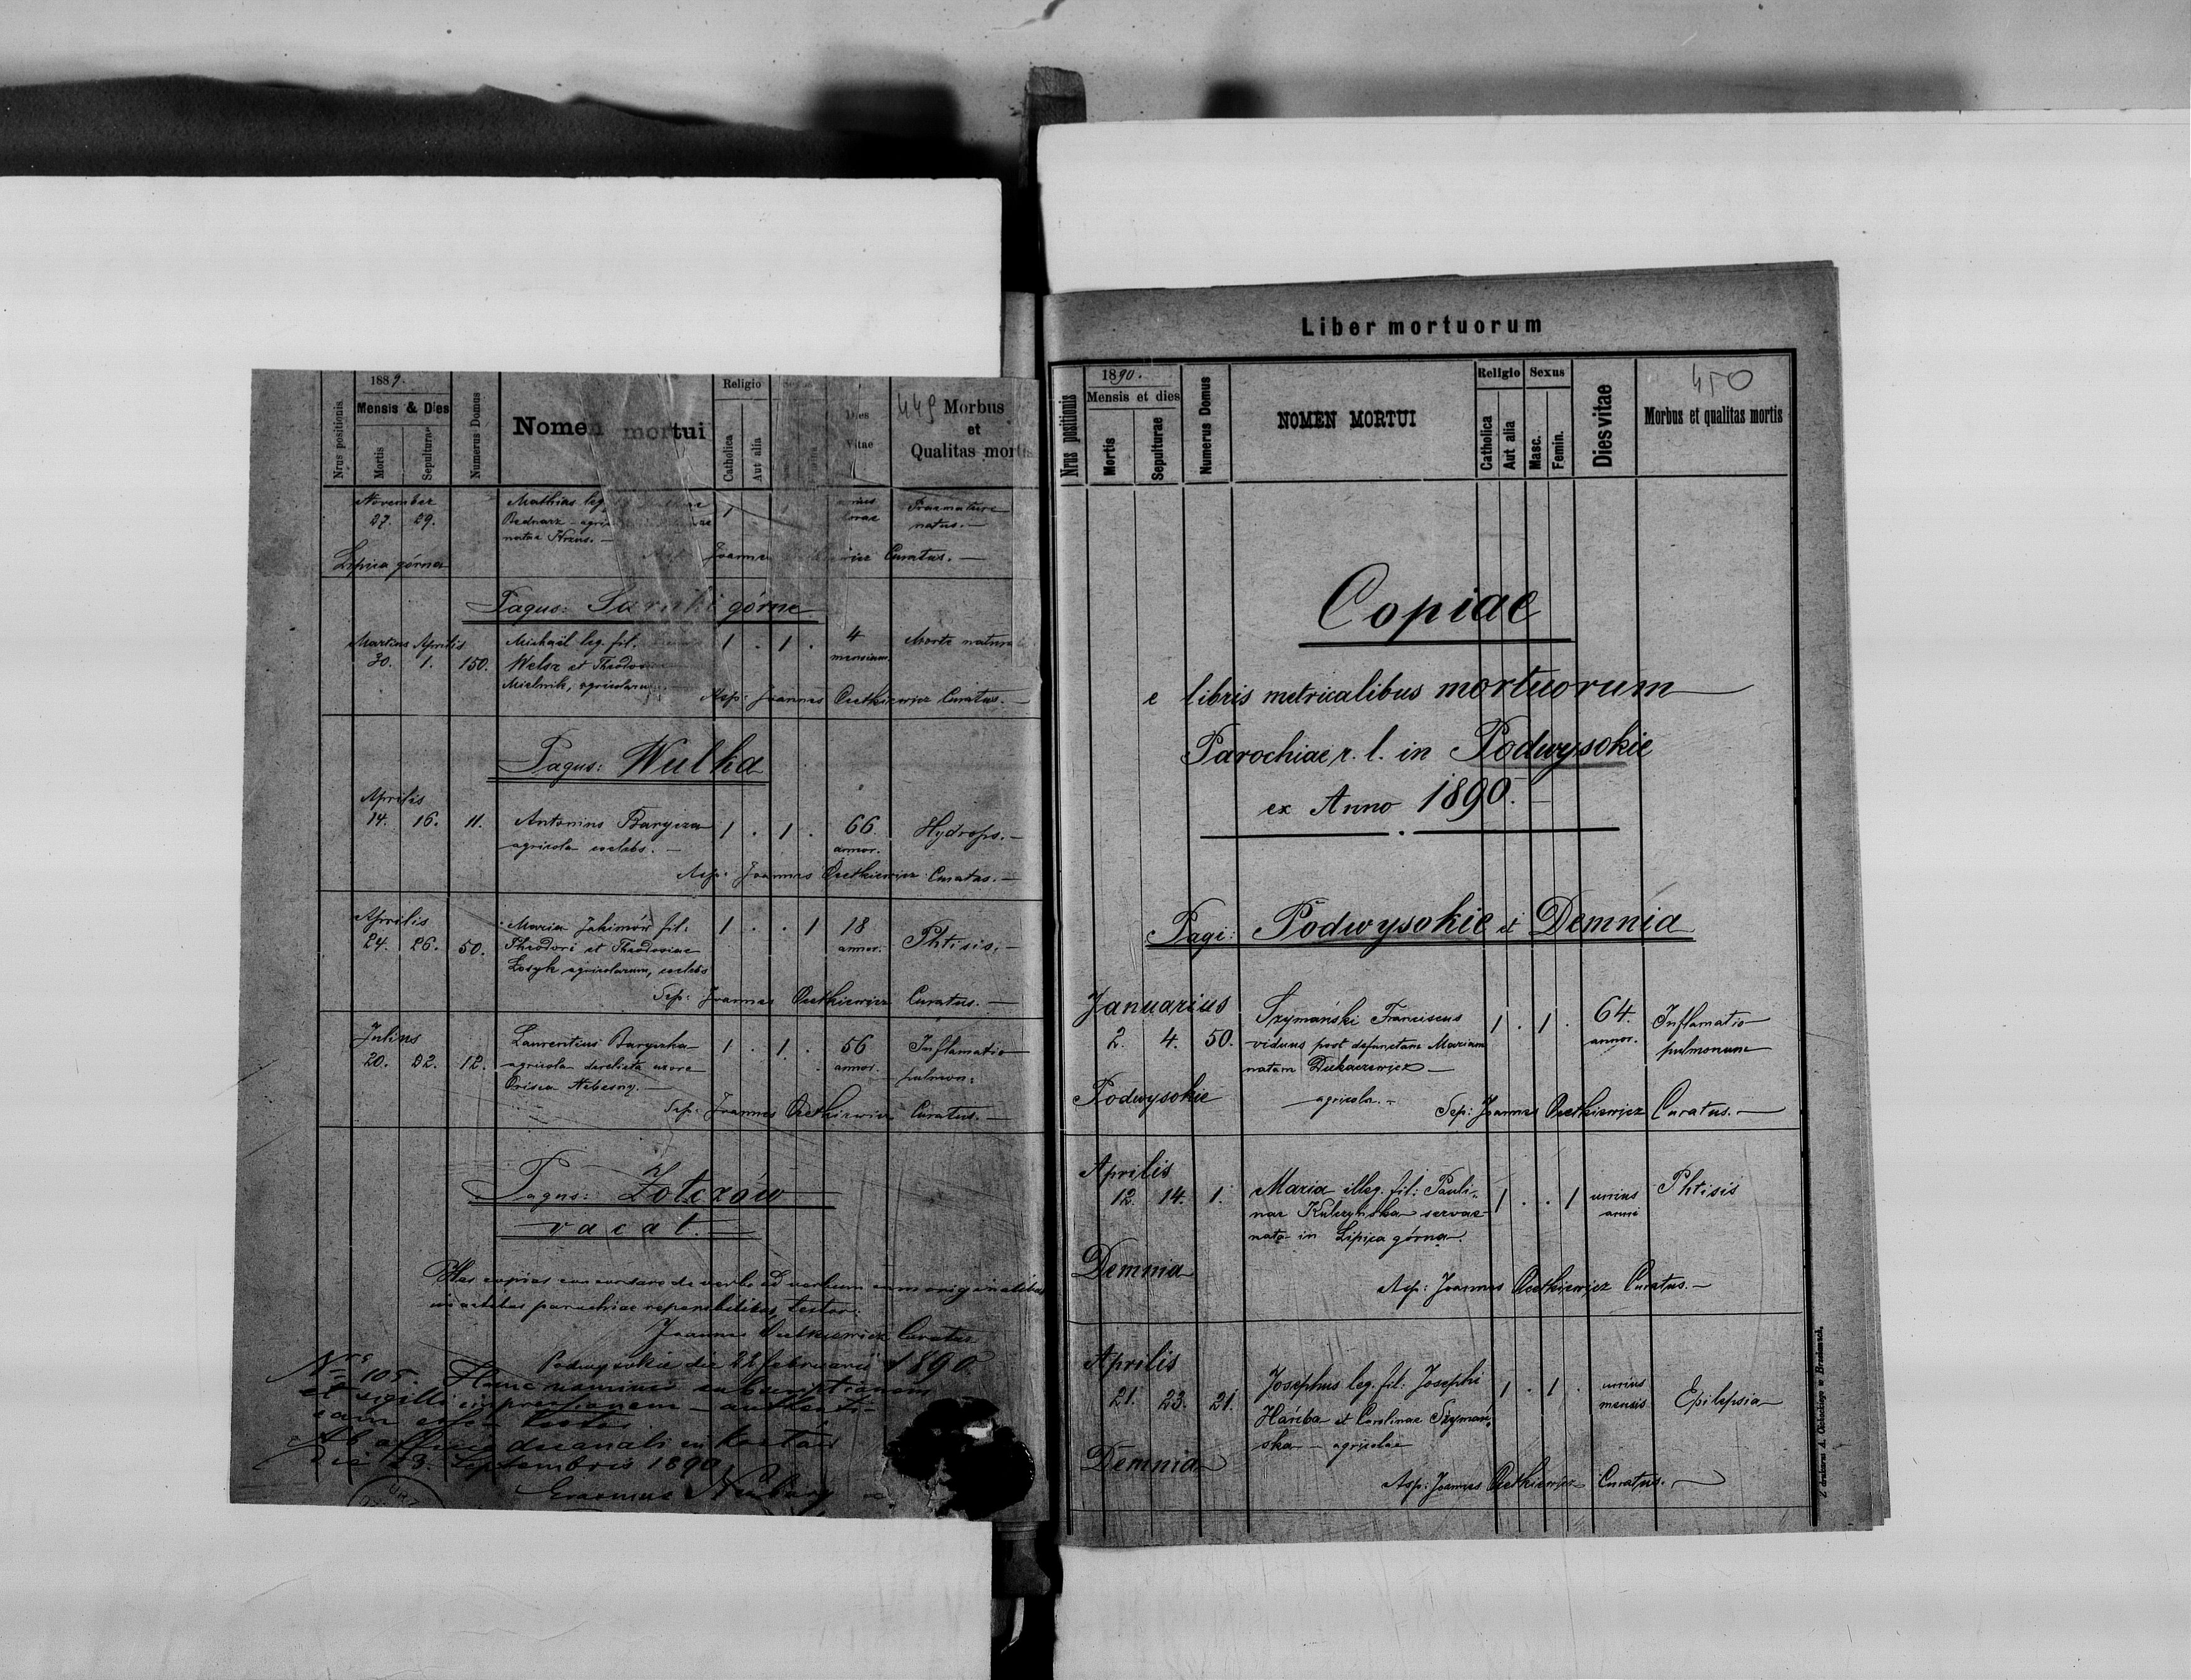 1889.
Nrus positionis
Mensis & Dies
Mortis
Sepulturae
Numerus Domus
Nomen mortui
Religio
Catholica
Aut alia
Dies
Vitae
449
Morbus
et
Qualitas mortis
November
27. 29.
Mathias leg
Bednarz
natus.
1
Praemature
natus.
Lipica górna
Joannes Curatus.
Pagus: Sarnki górne
Martius Aprilis
30. 1. 150.
Michaël leg. fil.
Welsz et
Mielnik, agricolarum
1 . 1 .
4
mensium
Morte natural
Asp: Joannes Oretkiewicz Curatus.
Pagus: Wulka
Aprilis
14. 16. 11.
Antonius Barycza
agricola coelebs.
1 . 1 .
66
annor.
Hydrops.
Asp: Joannes Oretkiewicz Curatus.
Aprilis
24. 26. 50.
Maria Jakimów fil:
Theodori et Theodoviae
Łosyk agricolarum, coelebs
1 . . 1
18
annor.
Phtisis.
Sep: Joannes Oretkiewicz Curatus.
Julius
20. 22. 12.
Laurentius Baryczka
agricola derelicta uxore
Nebesny.
1 . 1 .
56
annor.
Inflamatio
pulmon:
Sep: Joannes Oretkiewicz Curatus.
Pagus: Żołczów
vacat.
Has copias concordare de verbo ad verbum cum originalibus
in actibus parochiae reperibilibus, testor.
Joannes Oretkiewicz Curatus
Podwysokie die 22 februarii 1890
Nrs 105. Hanc nominis subscriptionem
et sigilli impressionem authenti-
cam esse testor
Ab officio decanali in
die 23. Septembris 1890
Erasmus
Liber mortuorum
Nrus positionis
1890.
Mensis et dies
Mortis
Sepulturae
Numerus Domus
NOMEN MORTUI
Religio
Catholica
Aut alia
Sexus
Masc.
Femin.
Dies vitae
450
Morbus et qualitas mortis
Copiae
e libris metricalibus mortuorum
Parochiae r. l. in Podwysokie
ex Anno 1890.
Pagi: Podwysokie et Demnia
Januarius
2. 4. 50.
Szymański Franciscus
viduus post defunctam Mariam
natam
agricola.
1 . 1 .
64.
annor.
Inflamatio
pulmonum
Podwysokie
Sep: Joannes Oretkiewicz Curatus.
Aprilis
12. 14. 1.
Maria illeg. fil: Pauli-
nae Kulczyńska servae
nata in Lipica górna.
1 . . 1
unius
anni
Phtisis
Demnia
Asp: Joannes Oretkiewicz Curatus.
Aprilis
21. 23. 21.
Josephus leg. fil: Josephi
Hańba et Carolinae Szymań-
ska - agricolae
1 . 1 .
unius
mensis
Epilepsia
Demnia
Asp: Joannes Oretkiewicz Curatus.